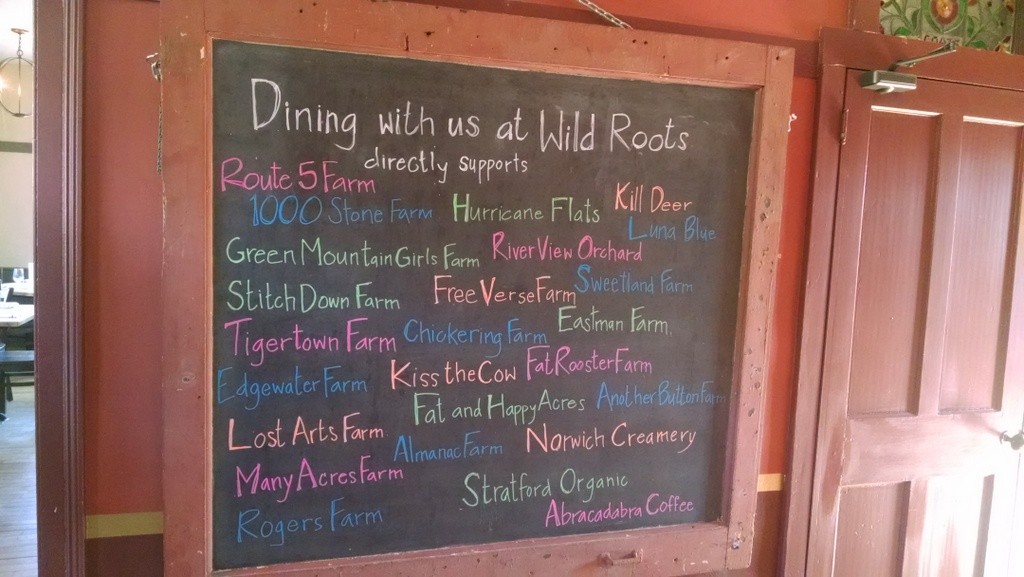 Dining with us at Wild Roots
directly supports
Route 5 Farm
1000 Stone Farm Hurricane Flats Kill Deer
Luna Blue
Green Mountain Girls Farm River View Orchard
Stitch Down Farm Free Verse Farm Sweetland Farm
Tigertown Farm Chickering Farm Eastman Farm,
Edgewater Farm Kiss the Cow Fat Rooster Farm
Fat and Happy Acres Another Button Farm
Lost Arts Farm Almanac Farm Norwich Creamery
Many Acres Farm Stratford Organic
Rogers Farm Abracadabra Coffee